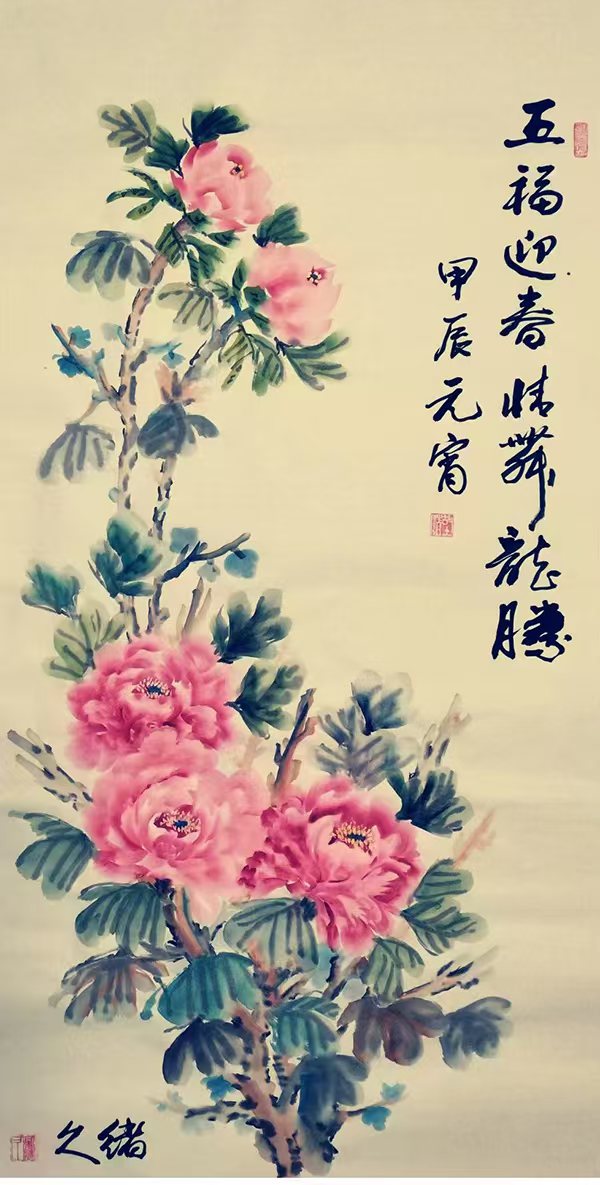 五福迎春情舞龍騰
甲辰元宵
久绪